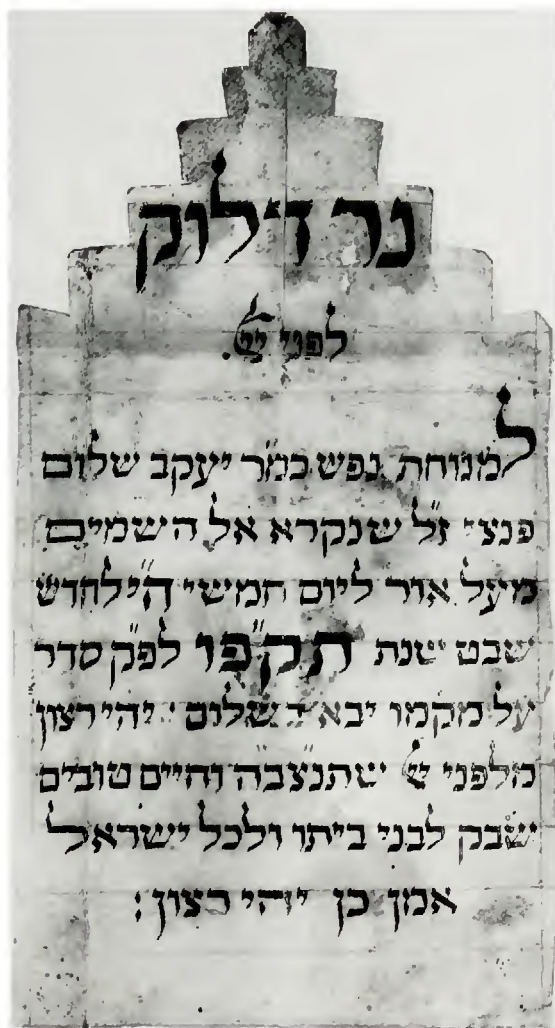 נר דילוק
לפני יי.
למנוחת נפש כמ״ר יעקב שלום
פנצי ז״ל שנקרא אל השמים
מעל אור ליום חמישי ה׳ לחדש
שבט שנת תקפ״ו לפ״ק סדר
על מקמו יבא בשלום יהי רצון
מלפני יי שתנצב״ה וחיים טובים
שבק לבני ביתו ולכל ישראל
אמן כן יהי רצון :